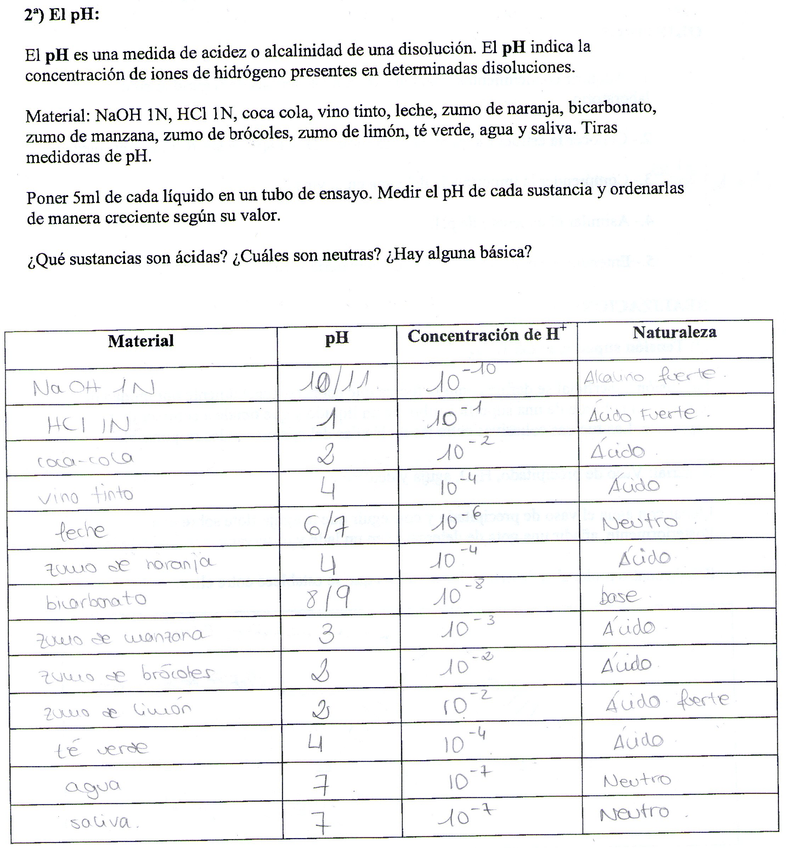 2ª) El pH:
El pH es una medida de acidez o alcalinidad de una disolución. El pH indica la
concentración de iones de hidrógeno presentes en determinadas disoluciones.
Material: NaOH 1N, HCl 1N, coca cola, vino tinto, leche, zumo de naranja, bicarbonato,
zumo de manzana, zumo de brócoles, zumo de limón, té verde, agua y saliva. Tiras
medidoras de pH.
Poner 5ml de cada líquido en un tubo de ensayo. Medir el pH de cada sustancia y ordenarlas
de manera creciente según su valor.
¿Qué sustancias son ácidas? ¿Cuáles son neutras? ¿Hay alguna básica?
Material pH Concentración de H⁺ Naturaleza
NaOH 1N 10/11. 10⁻¹⁰ Alcalino fuerte.
HCl 1N 1 10⁻¹ Ácido Fuerte.
coca-cola 2 10⁻² Ácido.
vino tinto 4 10⁻⁴ Ácido
leche 6/7 10⁻⁶ Neutro.
zumo de naranja 4 10⁻⁴ Ácido.
bicarbonato 8/9 10⁻⁸ base.
zumo de manzana 3 10⁻³ Ácido.
zumo de brócoles 2 10⁻² Ácido.
zumo de limón 2 10⁻² Ácido fuerte
té verde 4 10⁻⁴ Ácido.
agua 7 10⁻⁷ Neutro
saliva. 7 10⁻⁷ Neutro.